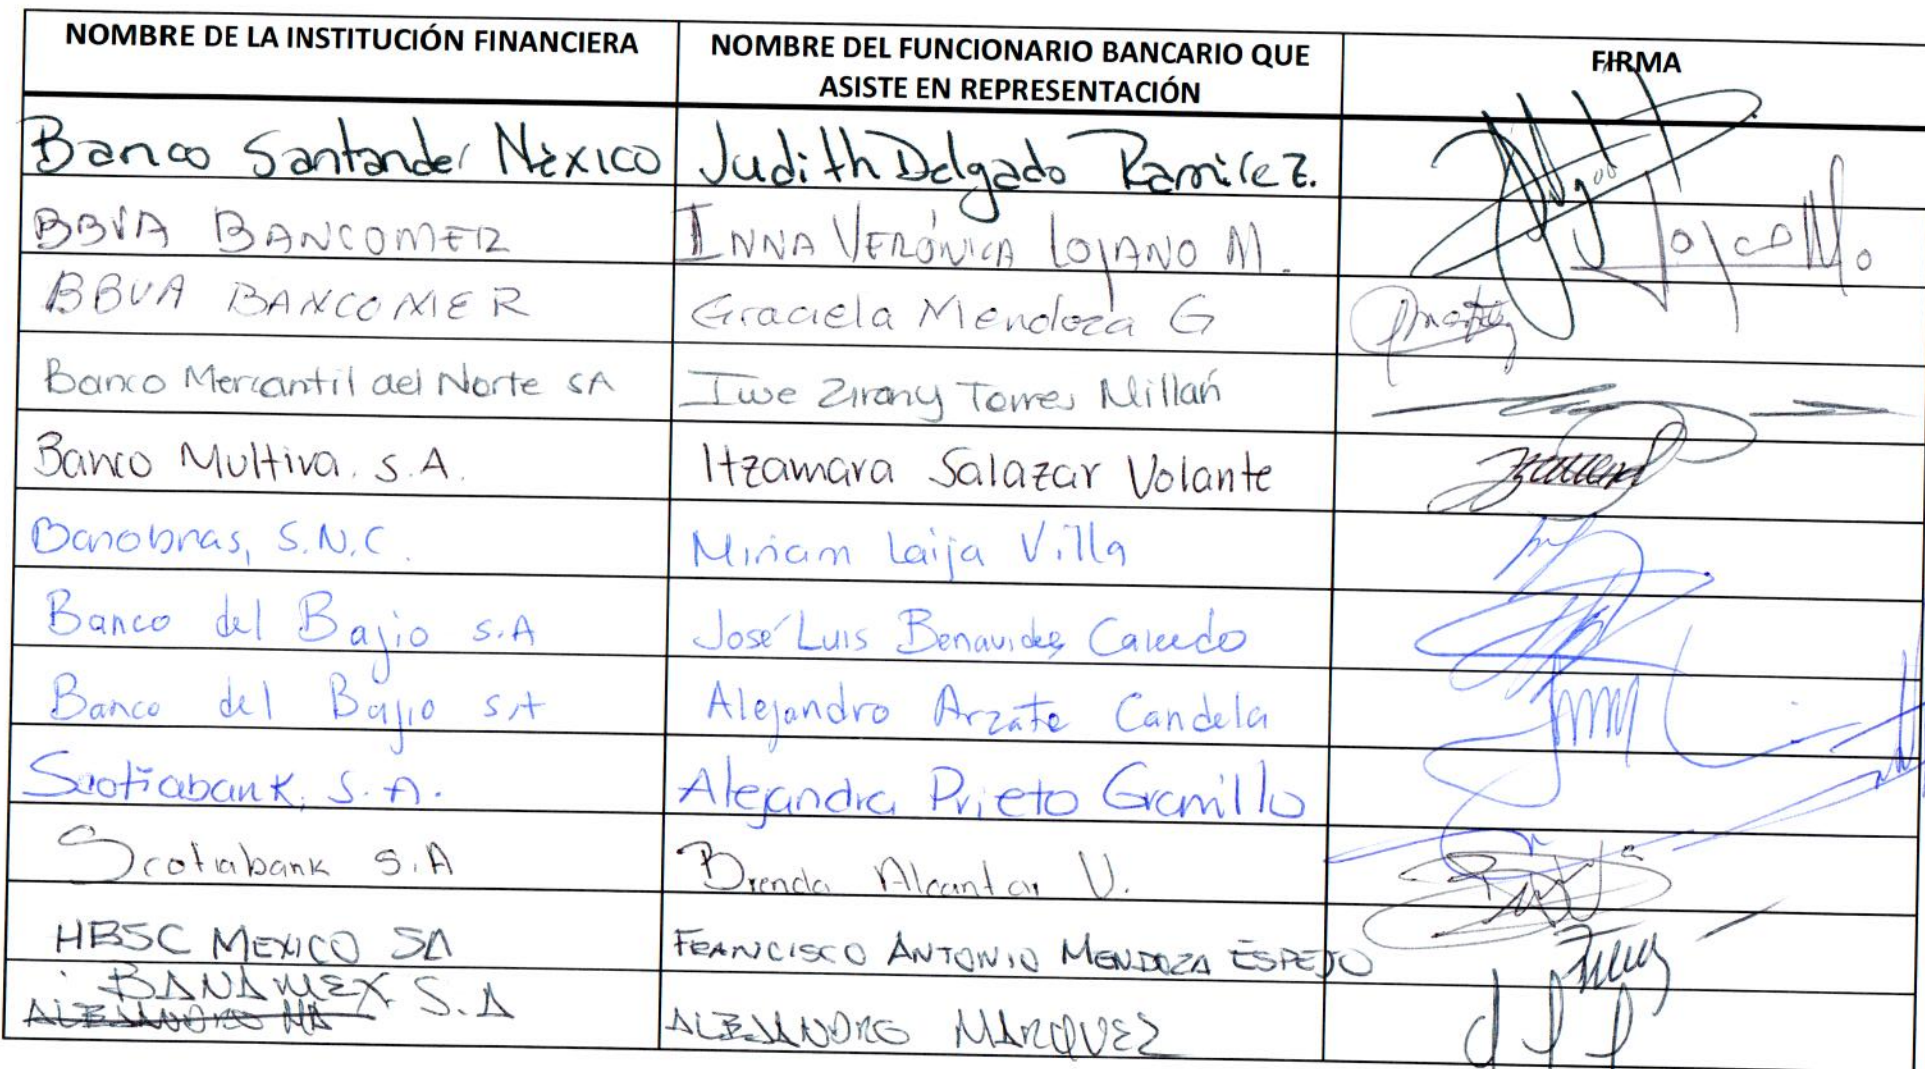 NOMBRE DE LA INSTITUCIÓN FINANCIERA
NOMBRE DEL FUNCIONARIO BANCARIO QUE
ASISTE EN REPRESENTACIÓN
FIRMA
Banco Santander México Judith Delgado Ramirez.
BBVA BANCOMER INNA VERÓNICA LOJANO M.
BBVA BANCOMER Graciela Mendoza G
Banco Mercantil del Norte SA Iwe Zirany Torres Millán
Banco Multiva. S.A. Itzamara Salazar Volante
Banobras, S.N.C. Miriam Laija Villa
Banco del Bajio S.A José Luis Benavides Caicedo
Banco del Bajio SA Alejandro Arzate Candela
Scotiabank, S.A. Alejandra Prieto Gramillo
Scotiabank S.A Brenda Alcantar V.
HBSC MEXICO SA FRANCISCO ANTONIO MENDOZA ESPEJO
BANAMEX S.A
ALEJANDRO MA ALEJANDRO MARQUEZ